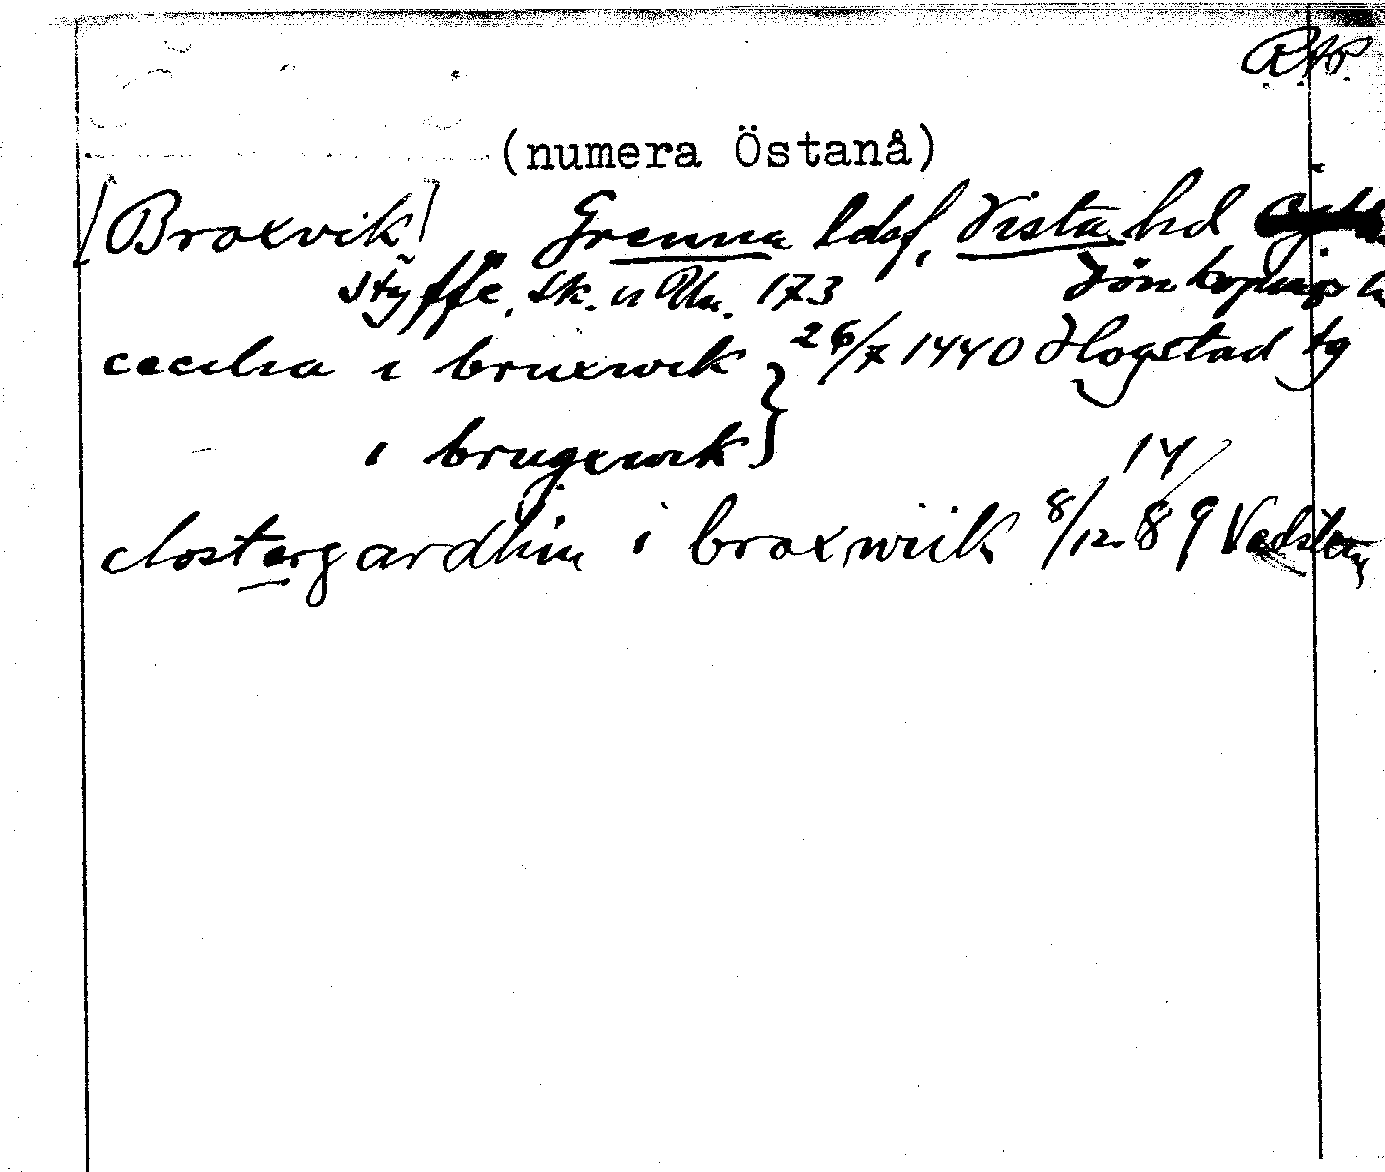 (numera Östanå)
[Broxvik] Grenna ldsf, Vista hd
Styffe, Sk. u Un. 173 Jönköpings l
cecilia i bruxwik } 26/7 1440 Hogstad tg
i brugxwik
clostergardhin i broxwiik 8/12 1489 Vadstena